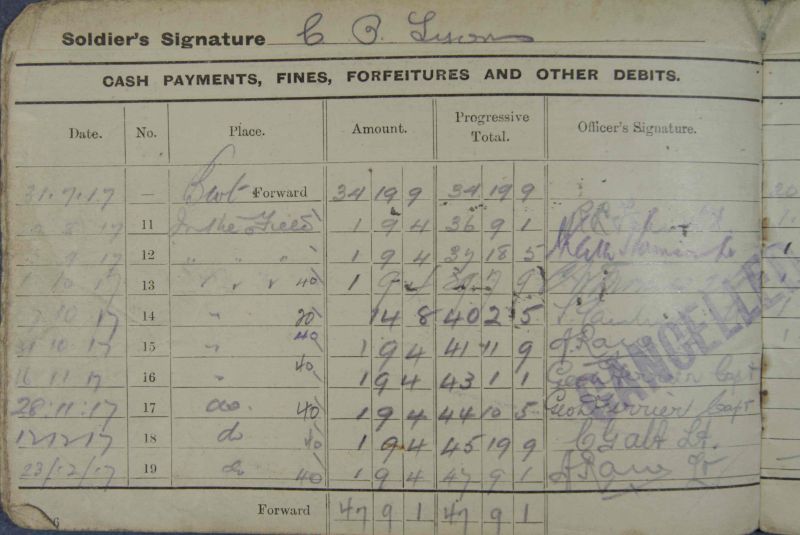 Soldier's Signature C. P.
CASH PAYMENTS, FINES, FORFEITURES AND OTHER DEBITS.
Date. No. Place. Amount. Progressive Total. Officer's Signature.
31.7.17 — Forward 34 19 9 34 19 9
8 17 11 In the Field 1 9 4 36 9 1
9 17 12 " " " " 1 9 4 37 18 5
10 17 13 " " " 40/ 1 9 4 9
10 17 14 " 20/ 14 8 40 2 5
10 17 15 " 40/ 1 9 4 41 11 9 J. Rane
16 11 17 16 " 40/ 1 9 4 43 1 1 Capt
28:11:17 17 do. 40/ 1 9 4 44 10 5 Geo Ferrier Capt
12/12/17 18 do 40/ 1 9 4 45 19 9 C Galt Lt.
23/12/17 19 do 40/ 1 9 4 47 9 1 J. Rane Lt
CANCELLED
6 Forward 47 9 1 47 9 1